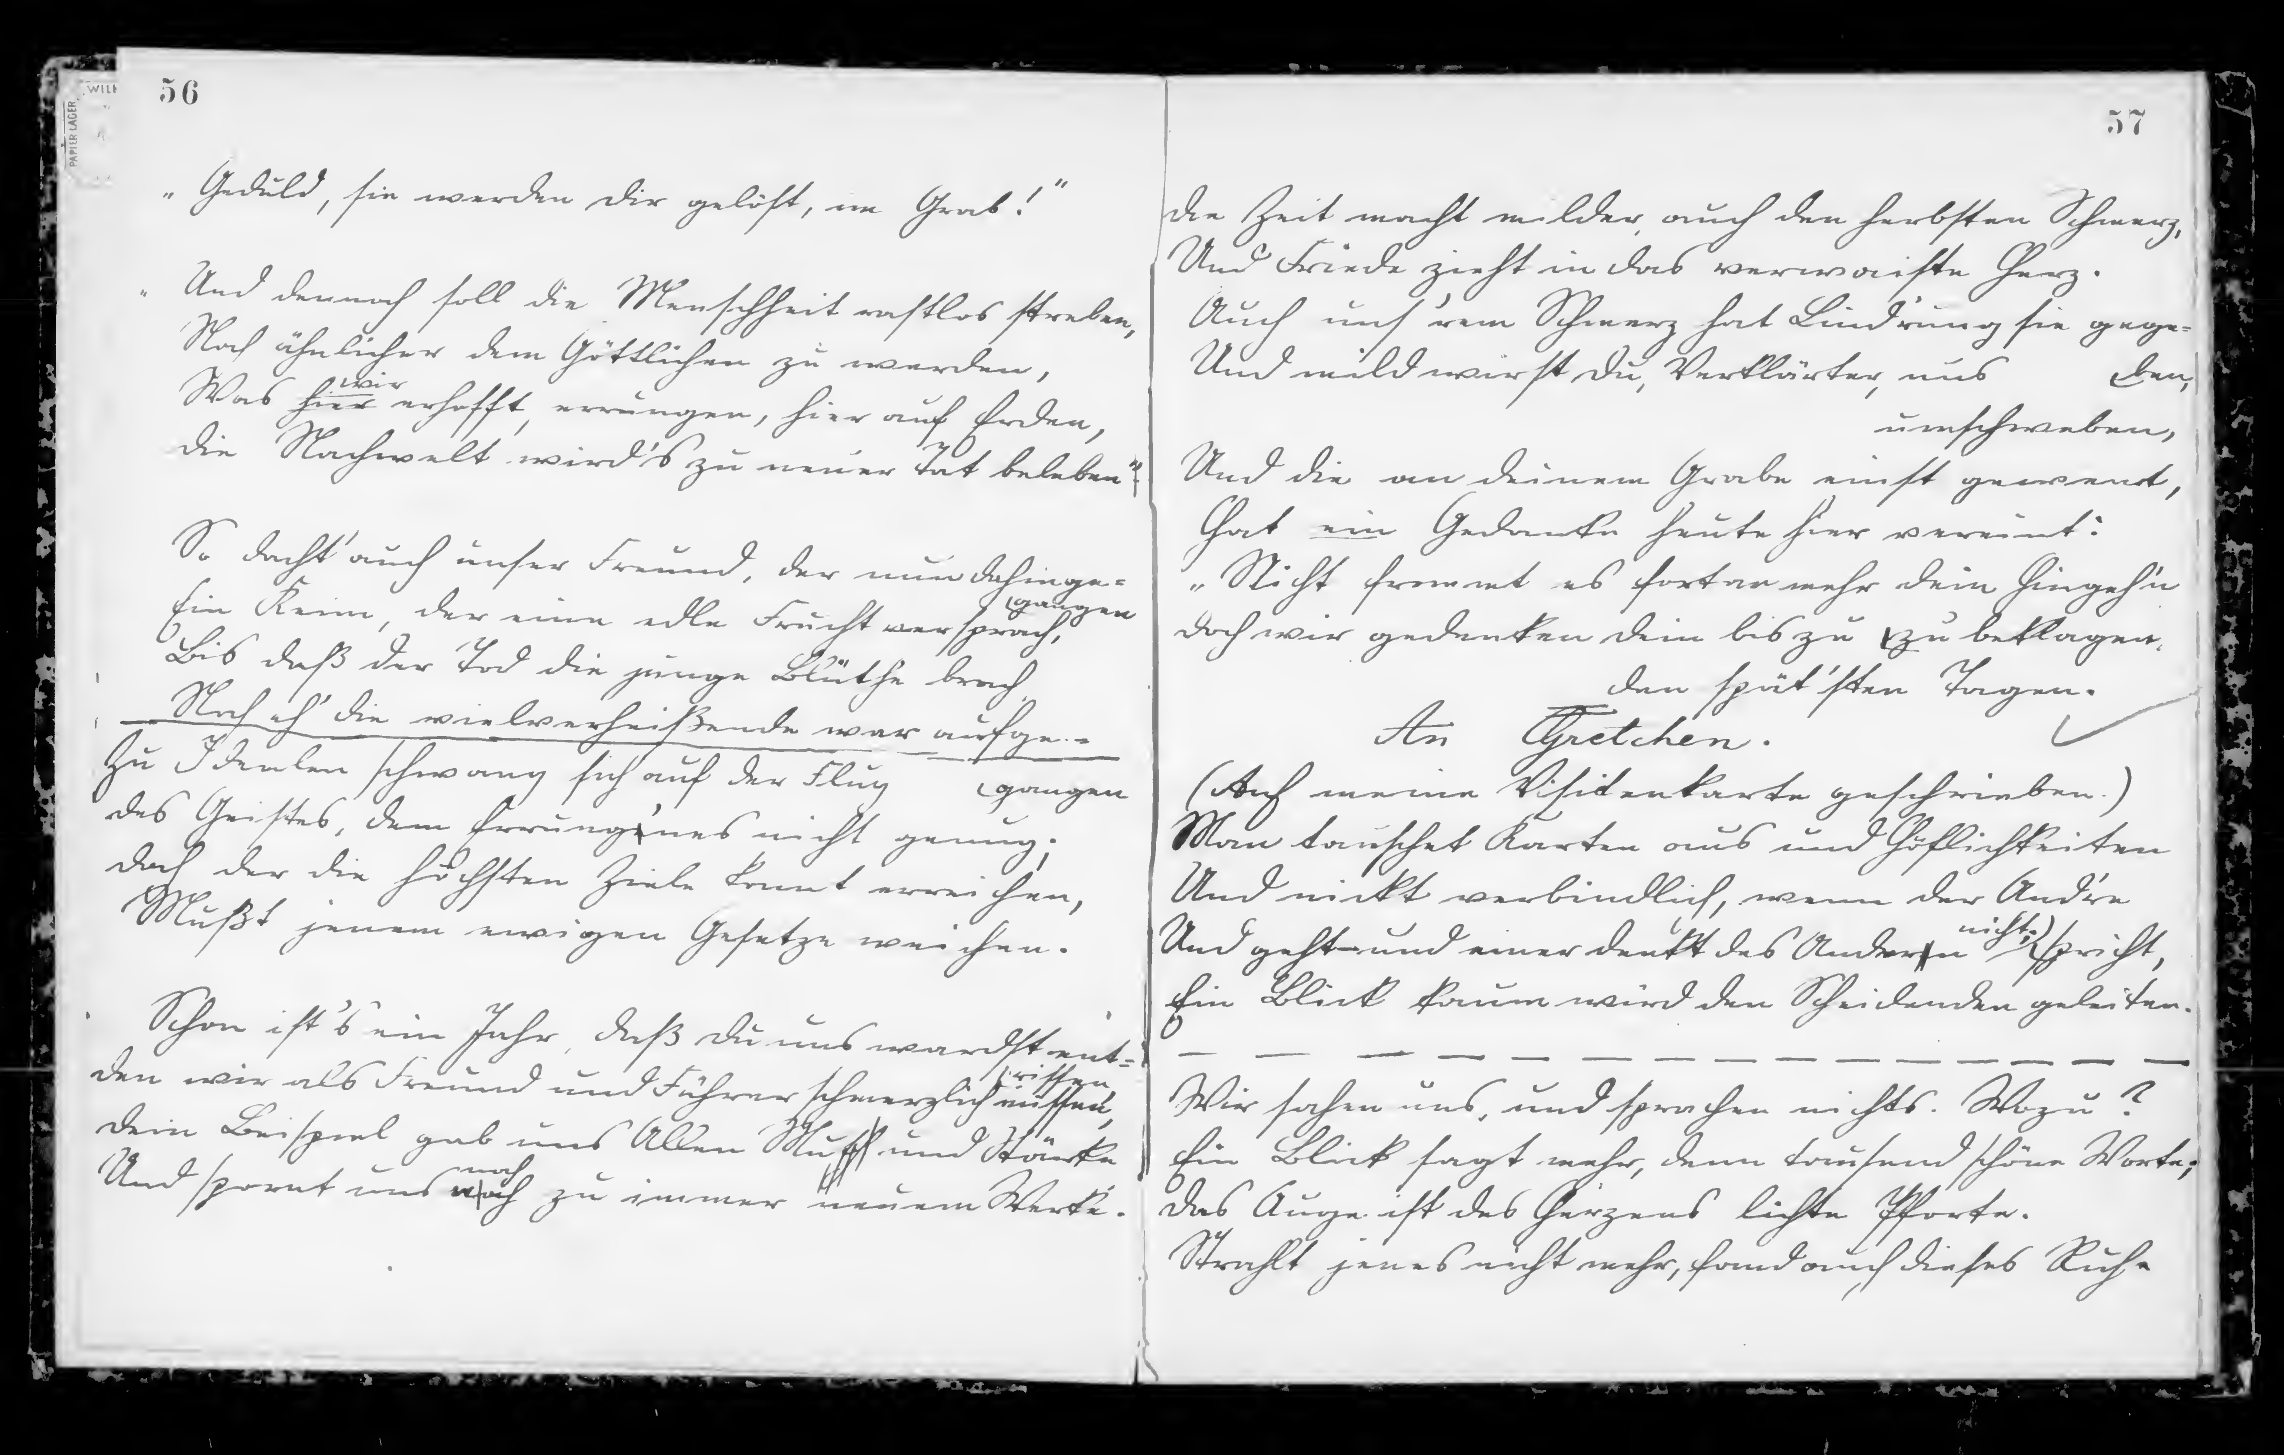 WILH
PAPIER LAGER
56
„Geduld, sie werden dir gelöst, im Grab!"
„Und dennoch soll die Menschheit rastlos streben,
Noch ähnlicher dem Göttlichen zu werden,
wir
Was hier erhofft, errungen, hier auf Erden,
Die Nachwelt wird's zu neuer Tat beleben".
So dacht' auch unser Freund, der nun dahinge=
(gangen
Ein Keim, der eine edle Frucht versprach,
Bis daß der Tod die junge Blüthe brach
Noch eh' die vielverheißende war aufge=
Zu Idealen schwang sich auf der Flug (gangen
Des Geistes, dem Errung'nes nicht genug;
Doch der die höchsten Ziele konnt erreichen,
Mußt jenem ewigen Gesetze weichen.
Schon ist's ein Jahr, daß du uns wardst ent=
(rissen
Den wir als Freund und Führer schmerzlich missen,
Dein Beispiel gab uns Allen Muth und Stärke
noch
Und spornt uns noch zu immer neuem Werke.
57
Die Zeit macht milder, auch den herbsten Schmerz,
Und Friede zieht in das verwaiste Herz.
Auch uns'rem Schmerz hat Lind'rung sie gege=
Und mild wirst du, Verklärter, uns (ben,
umschweben,
Und die an deinem Grabe einst geweint,
Hat ein Gedanke heute hier vereint:
„Nicht frommt es fortan mehr dein Hingeh'n
Doch wir gedenken dein bis zu (zu beklagen,
den spät'sten Tagen.
An Gretchen.
(Auf meine Visitenkarte geschrieben.)
Man tauschet Karten aus und Höflichkeiten
Und nickt verbindlich, wenn der And're
nicht;) (spricht,
Und geht – und einer denkt des Andern
Ein Blick kaum wird den Scheidenden geleiten.
Wir sahen uns, und sprachen nichts. Wozu?
Ein Blick sagt mehr, denn tausend schöne Worte;
Das Auge ist des Herzens lichte Pforte.
Strahlt jenes nicht mehr, fand auch dieses Ruhe